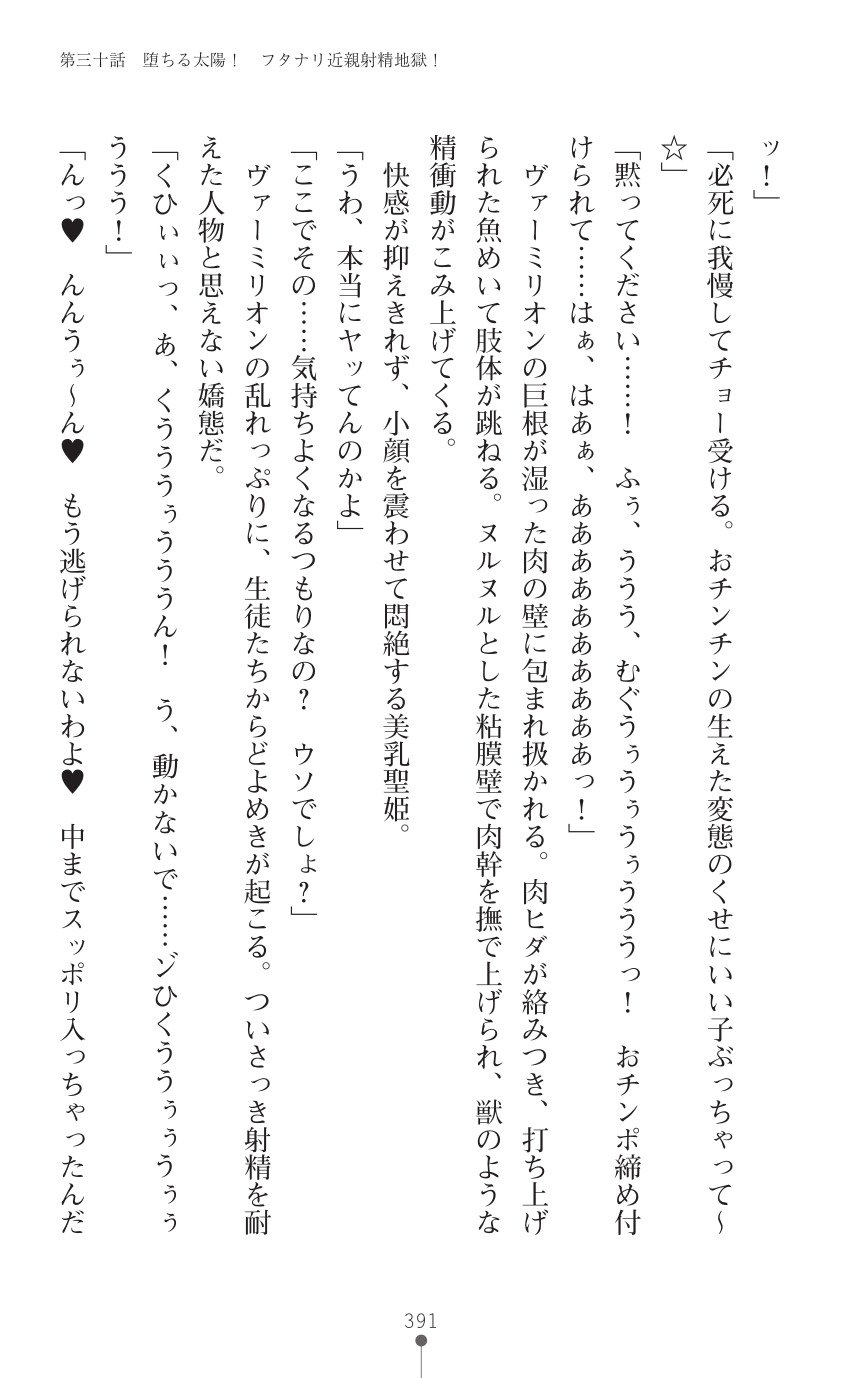 第三十話　堕ちる太陽！　フタナリ近親射精地獄！
ッ！」
「必死に我慢してチョー受ける。おチンチンの生えた変態のくせにいい子ぶっちゃって～
☆」
「黙ってください……！　ふぅ、ううう、むぐうぅうぅうぅうううっ！　おチンポ締め付
けられて……はぁ、はあぁ、ああああああああああっ！」
　ヴァーミリオンの巨根が湿った肉の壁に包まれ扱かれる。肉ヒダが絡みつき、打ち上げ
られた魚めいて肢体が跳ねる。ヌルヌルとした粘膜壁で肉幹を撫で上げられ、獣のような
精衝動がこみ上げてくる。
　快感が抑えきれず、小顔を震わせて悶絶する美乳聖姫。
「うわ、本当にヤッてんのかよ」
「ここでその……気持ちよくなるつもりなの？　ウソでしょ？」
　ヴァーミリオンの乱れっぷりに、生徒たちからどよめきが起こる。ついさっき射精を耐
えた人物と思えない嬌態だ。
「くひぃぃっ、あ、くうううぅうううん！　う、動かないで……ゾひくううぅぅうぅぅ
ううう！」
「んっ♥　んんうぅ～ん♥　もう逃げられないわよ♥　中までスッポリ入っちゃったんだ
391